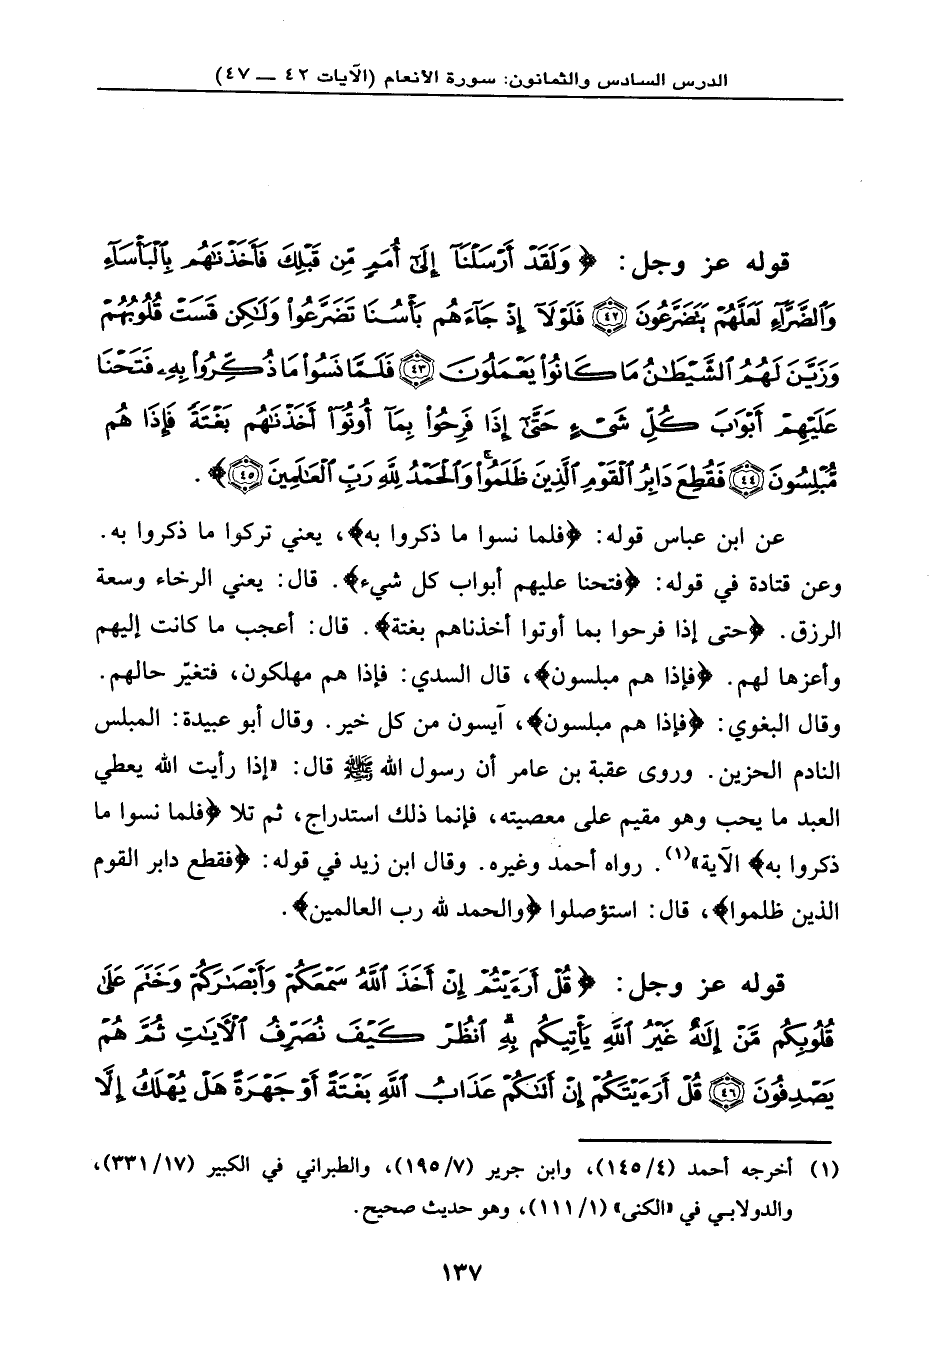 الدرس السادس والثمانون: سورة الأنعام (الآيات ٤٢ — ٤٧)
قوله عز وجل: ﴿ وَلَقَدْ أَرْسَلْنَآ إِلَىٰٓ أُمَمٍ مِّن قَبْلِكَ فَأَخَذْنَٰهُم بِٱلْبَأْسَآءِ
وَٱلضَّرَّآءِ لَعَلَّهُمْ يَتَضَرَّعُونَ ۝٤٢ فَلَوْلَآ إِذْ جَآءَهُم بَأْسُنَا تَضَرَّعُوا۟ وَلَٰكِن قَسَتْ قُلُوبُهُمْ
وَزَيَّنَ لَهُمُ ٱلشَّيْطَٰنُ مَا كَانُوا۟ يَعْمَلُونَ ۝٤٣ فَلَمَّا نَسُوا۟ مَا ذُكِّرُوا۟ بِهِۦ فَتَحْنَا
عَلَيْهِمْ أَبْوَٰبَ كُلِّ شَىْءٍ حَتَّىٰٓ إِذَا فَرِحُوا۟ بِمَآ أُوتُوٓا۟ أَخَذْنَٰهُم بَغْتَةً فَإِذَا هُم
مُّبْلِسُونَ ۝٤٤ فَقُطِعَ دَابِرُ ٱلْقَوْمِ ٱلَّذِينَ ظَلَمُوا۟ۚ وَٱلْحَمْدُ لِلَّهِ رَبِّ ٱلْعَٰلَمِينَ ۝٤٥ ﴾ .
عن ابن عباس قوله: ﴿فلما نسوا ما ذكروا به﴾، يعني تركوا ما ذكروا به.
وعن قتادة في قوله: ﴿فتحنا عليهم أبواب كل شيء﴾. قال: يعني الرخاء وسعة
الرزق. ﴿حتى إذا فرحوا بما أوتوا أخذناهم بغتة﴾. قال: أعجب ما كانت إليهم
وأعزها لهم. ﴿فإذا هم مبلسون﴾، قال السدي: فإذا هم مهلكون، فتغيّر حالهم.
وقال البغوي: ﴿فإذا هم مبلسون﴾، آيسون من كل خير. وقال أبو عبيدة: المبلس
النادم الحزين. وروى عقبة بن عامر أن رسول الله ﷺ قال: «إذا رأيت الله يعطي
العبد ما يحب وهو مقيم على معصيته، فإنما ذلك استدراج، ثم تلا ﴿فلما نسوا ما
ذكروا به﴾ الآية»(١). رواه أحمد وغيره. وقال ابن زيد في قوله: ﴿فقطع دابر القوم
الذين ظلموا﴾، قال: استؤصلوا ﴿والحمد لله رب العالمين﴾.
قوله عز وجل: ﴿ قُلْ أَرَءَيْتُمْ إِنْ أَخَذَ ٱللَّهُ سَمْعَكُمْ وَأَبْصَٰرَكُمْ وَخَتَمَ عَلَىٰ
قُلُوبِكُم مَّنْ إِلَٰهٌ غَيْرُ ٱللَّهِ يَأْتِيكُم بِهِۗ ٱنظُرْ كَيْفَ نُصَرِّفُ ٱلْءَايَٰتِ ثُمَّ هُمْ
يَصْدِفُونَ ۝٤٦ قُلْ أَرَءَيْتَكُمْ إِنْ أَتَىٰكُمْ عَذَابُ ٱللَّهِ بَغْتَةً أَوْ جَهْرَةً هَلْ يُهْلَكُ إِلَّا
(١) أخرجه أحمد (١٤٥/٤)، وابن جرير (١٩٥/٧)، والطبراني في الكبير (٣٣١/١٧)،
والدولابي في «الكنى» (١١١/١)، وهو حديث صحيح.
١٣٧